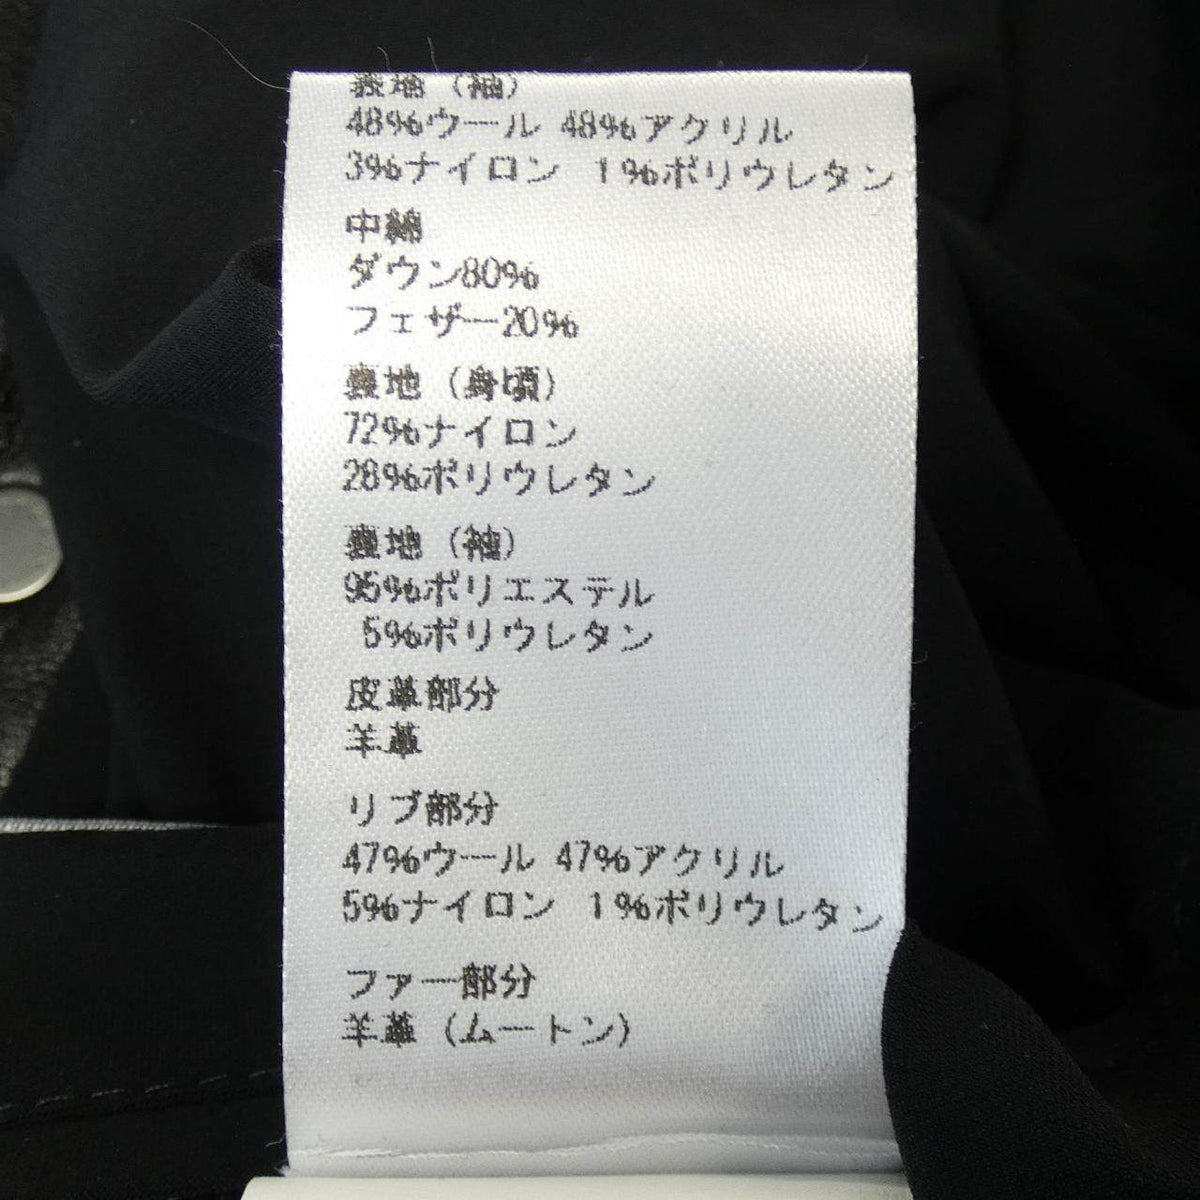 表地（袖）
48%ウール 48%アクリル
3%ナイロン 1%ポリウレタン
中綿
ダウン80%
フェザー20%
裏地（身頃）
72%ナイロン
28%ポリウレタン
裏地（袖）
95%ポリエステル
5%ポリウレタン
皮革部分
羊革
リブ部分
47%ウール 47%アクリル
5%ナイロン 1%ポリウレタン
ファー部分
羊革（ムートン）